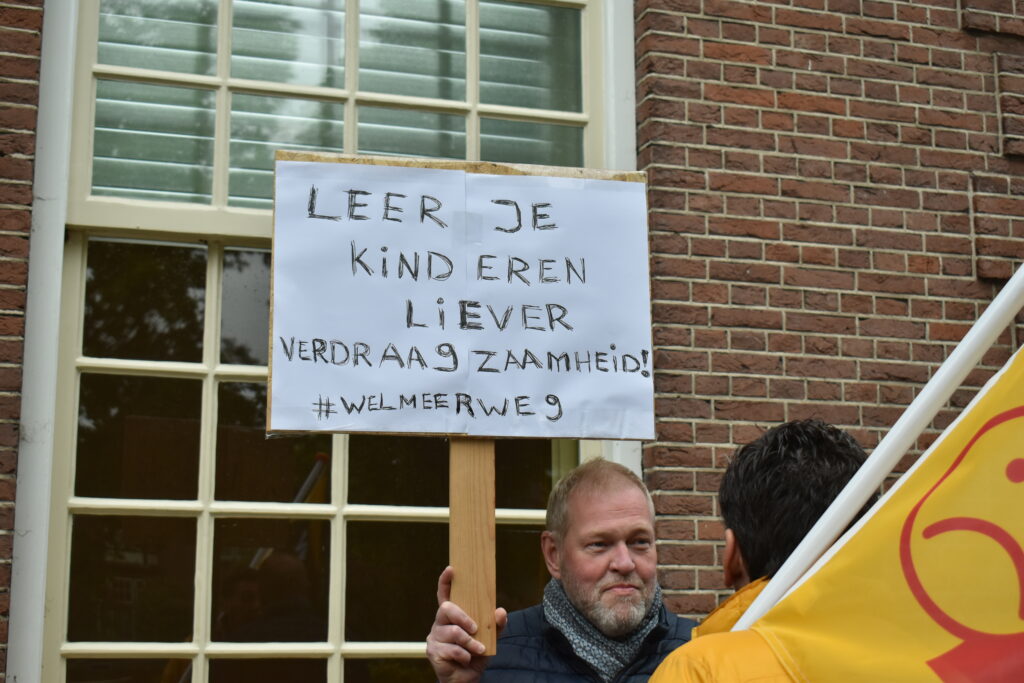 LEER JE
KiNDEREN
LiEVER
VERDRAAgZAAMHEiD!
#WELMEERWEg